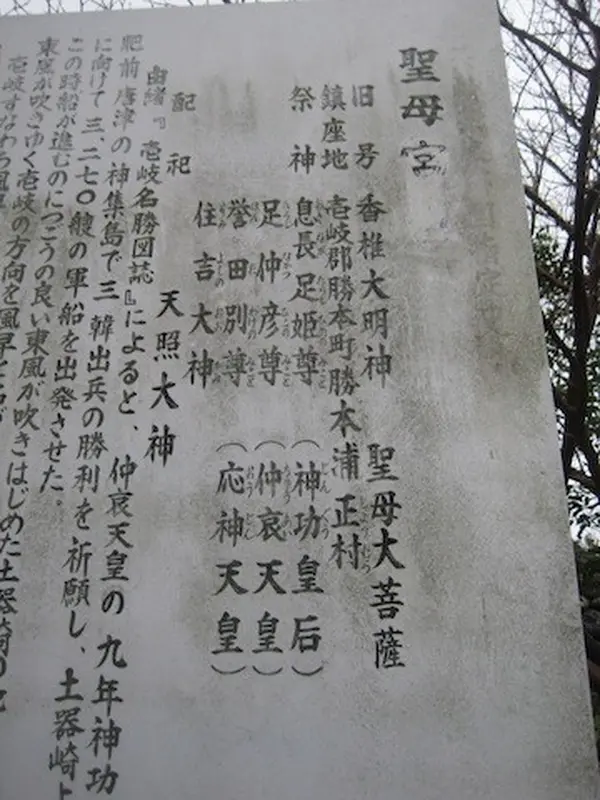 聖母宮
旧号 香椎大明神 聖母大菩薩
鎮座地 壱岐郡勝本町勝本浦正村
祭神 息長足姫尊（神功皇后）
足仲彦尊（仲哀天皇）
誉田別尊（応神天皇）
住吉大神
配祀 天照大神
由緒『壱岐名勝図誌』によると、仲哀天皇の九年神功
肥前唐津の神集島で三韓出兵の勝利を祈願し、土器崎よ
に向けて三、二七〇艘の軍船を出発させた。
この時船が進むのにつごうの良い東風が吹きはじめた土器崎の
東風が吹きゆく壱岐の方向を風早と
壱岐すなわち風早